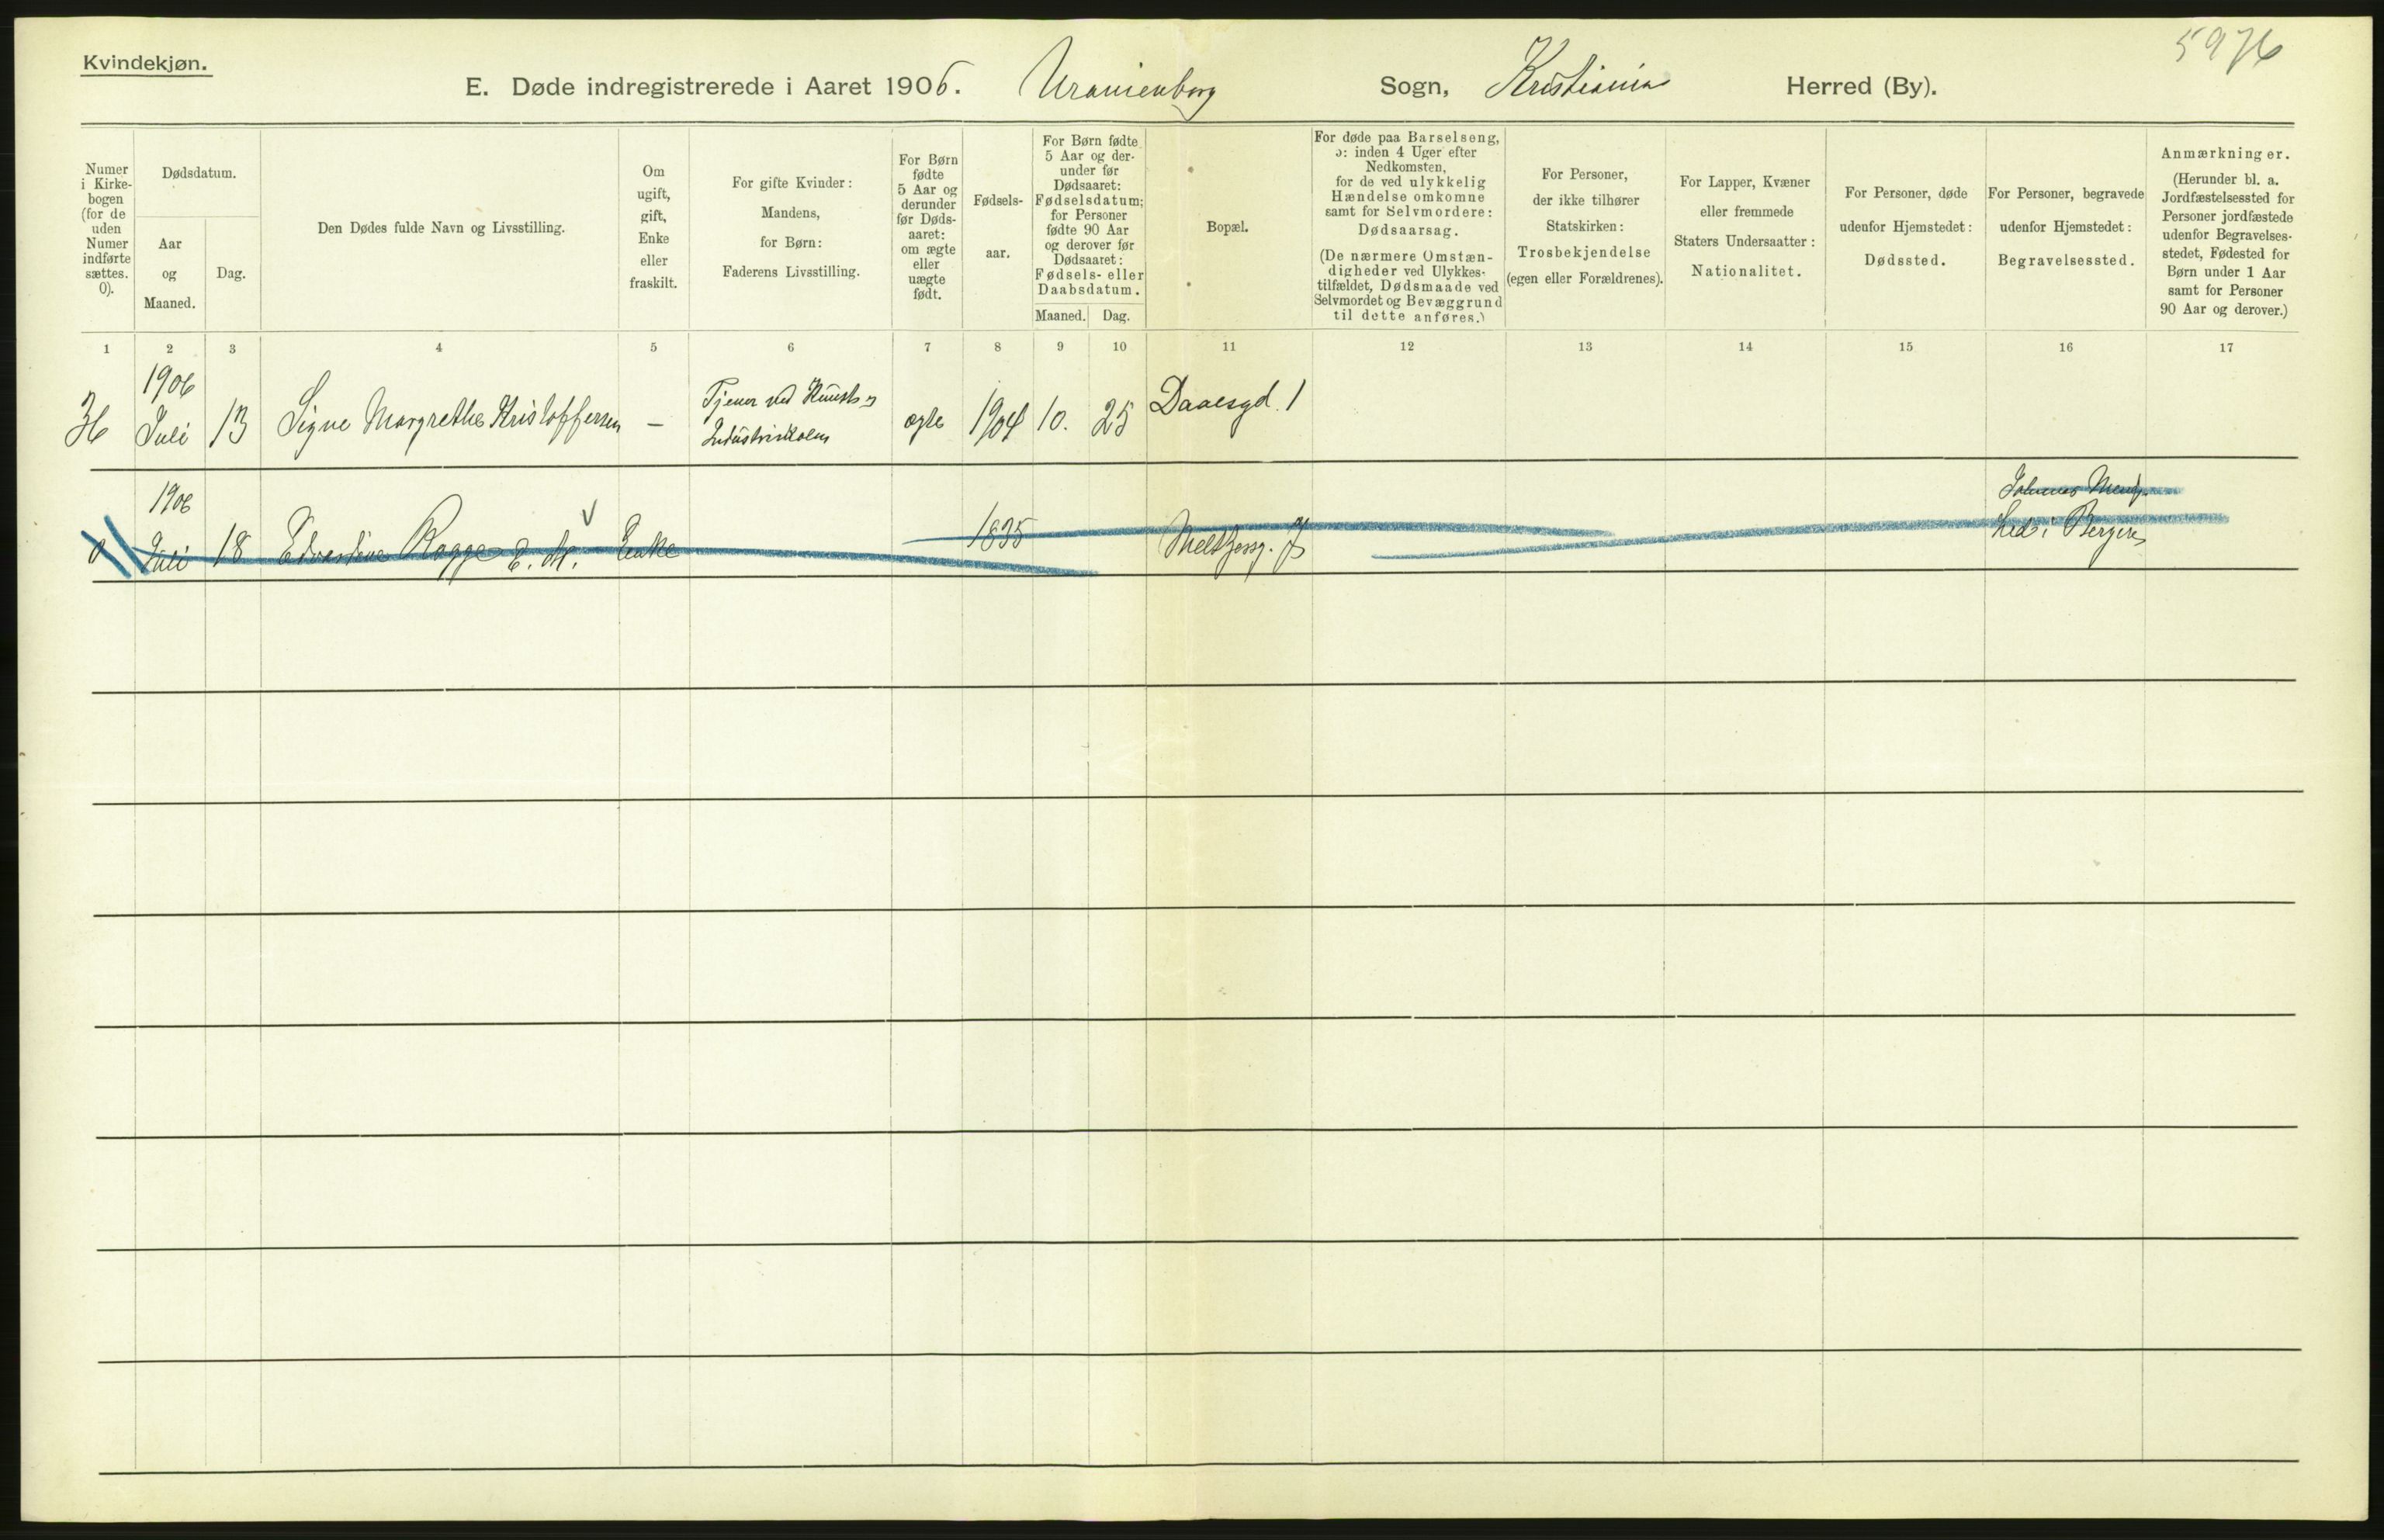 Kvindekjøn.
5976
E. Døde indregistrerede i Aaret 1906. Uranienborg Sogn, Kristiania Herred (By).
Numer
i Kirke-
bogen
(for de
uden
Numer
indførte
sættes.
0).
Dødsdatum.
Aar
og
Maaned.
Dag.
Den Dødes fulde Navn og Livsstilling.
Om
ugift,
gift,
Enke
eller
fraskilt.
For gifte Kvinder:
Mandens,
for Børn:
Faderens Livsstilling.
For Børn
fødte
5 Aar og
derunder
før Døds-
aaret:
om ægte
eller
uægte
født.
Fødsels-
aar.
For Børn fødte
5 Aar og der-
under før
Dødsaaret:
Fødselsdatum;
for Personer
fødte 90 Aar
og derover før
Dødsaaret:
Fødsels- eller
Daabsdatum.
Maaned. Dag.
Bopæl.
For døde paa Barselseng,
ɔ: inden 4 Uger efter
Nedkomsten,
for de ved ulykkelig
Hændelse omkomne
samt for Selvmordere:
Dødsaarsag.
(De nærmere Omstæn-
digheder ved Ulykkes-
tilfældet, Dødsmaade ved
Selvmordet og Bevæggrund
til dette anføres.)
For Personer,
der ikke tilhører
Statskirken:
Trosbekjendelse
(egen eller Forældrenes).
For Lapper, Kvæner
eller fremmede
Staters Undersaatter:
Nationalitet.
For Personer, døde
udenfor Hjemstedet:
Dødssted.
For Personer, begravede
udenfor Hjemstedet:
Begravelsessted.
Anmærkninger.
(Herunder bl. a.
Jordfæstelsessted for
Personer jordfæstede
udenfor Begravelses-
stedet, Fødested for
Børn under 1 Aar
samt for Personer
90 Aar og derover.)
1 2 3 4 5 6 7 8 9 10 11 12 13 14 15 16 17
1906
Juli 13 Signe Margrethe Kristoffersen —
Tjener ved Kunst &
Industriskolen
ægte 1904 10. 25 Daaesgd. 1
1906
0 Juli 18 Edvardine Rogge E. M. Enke 1835 Meltzersg. 7
Johannes Menigh.
Ked i Bergen